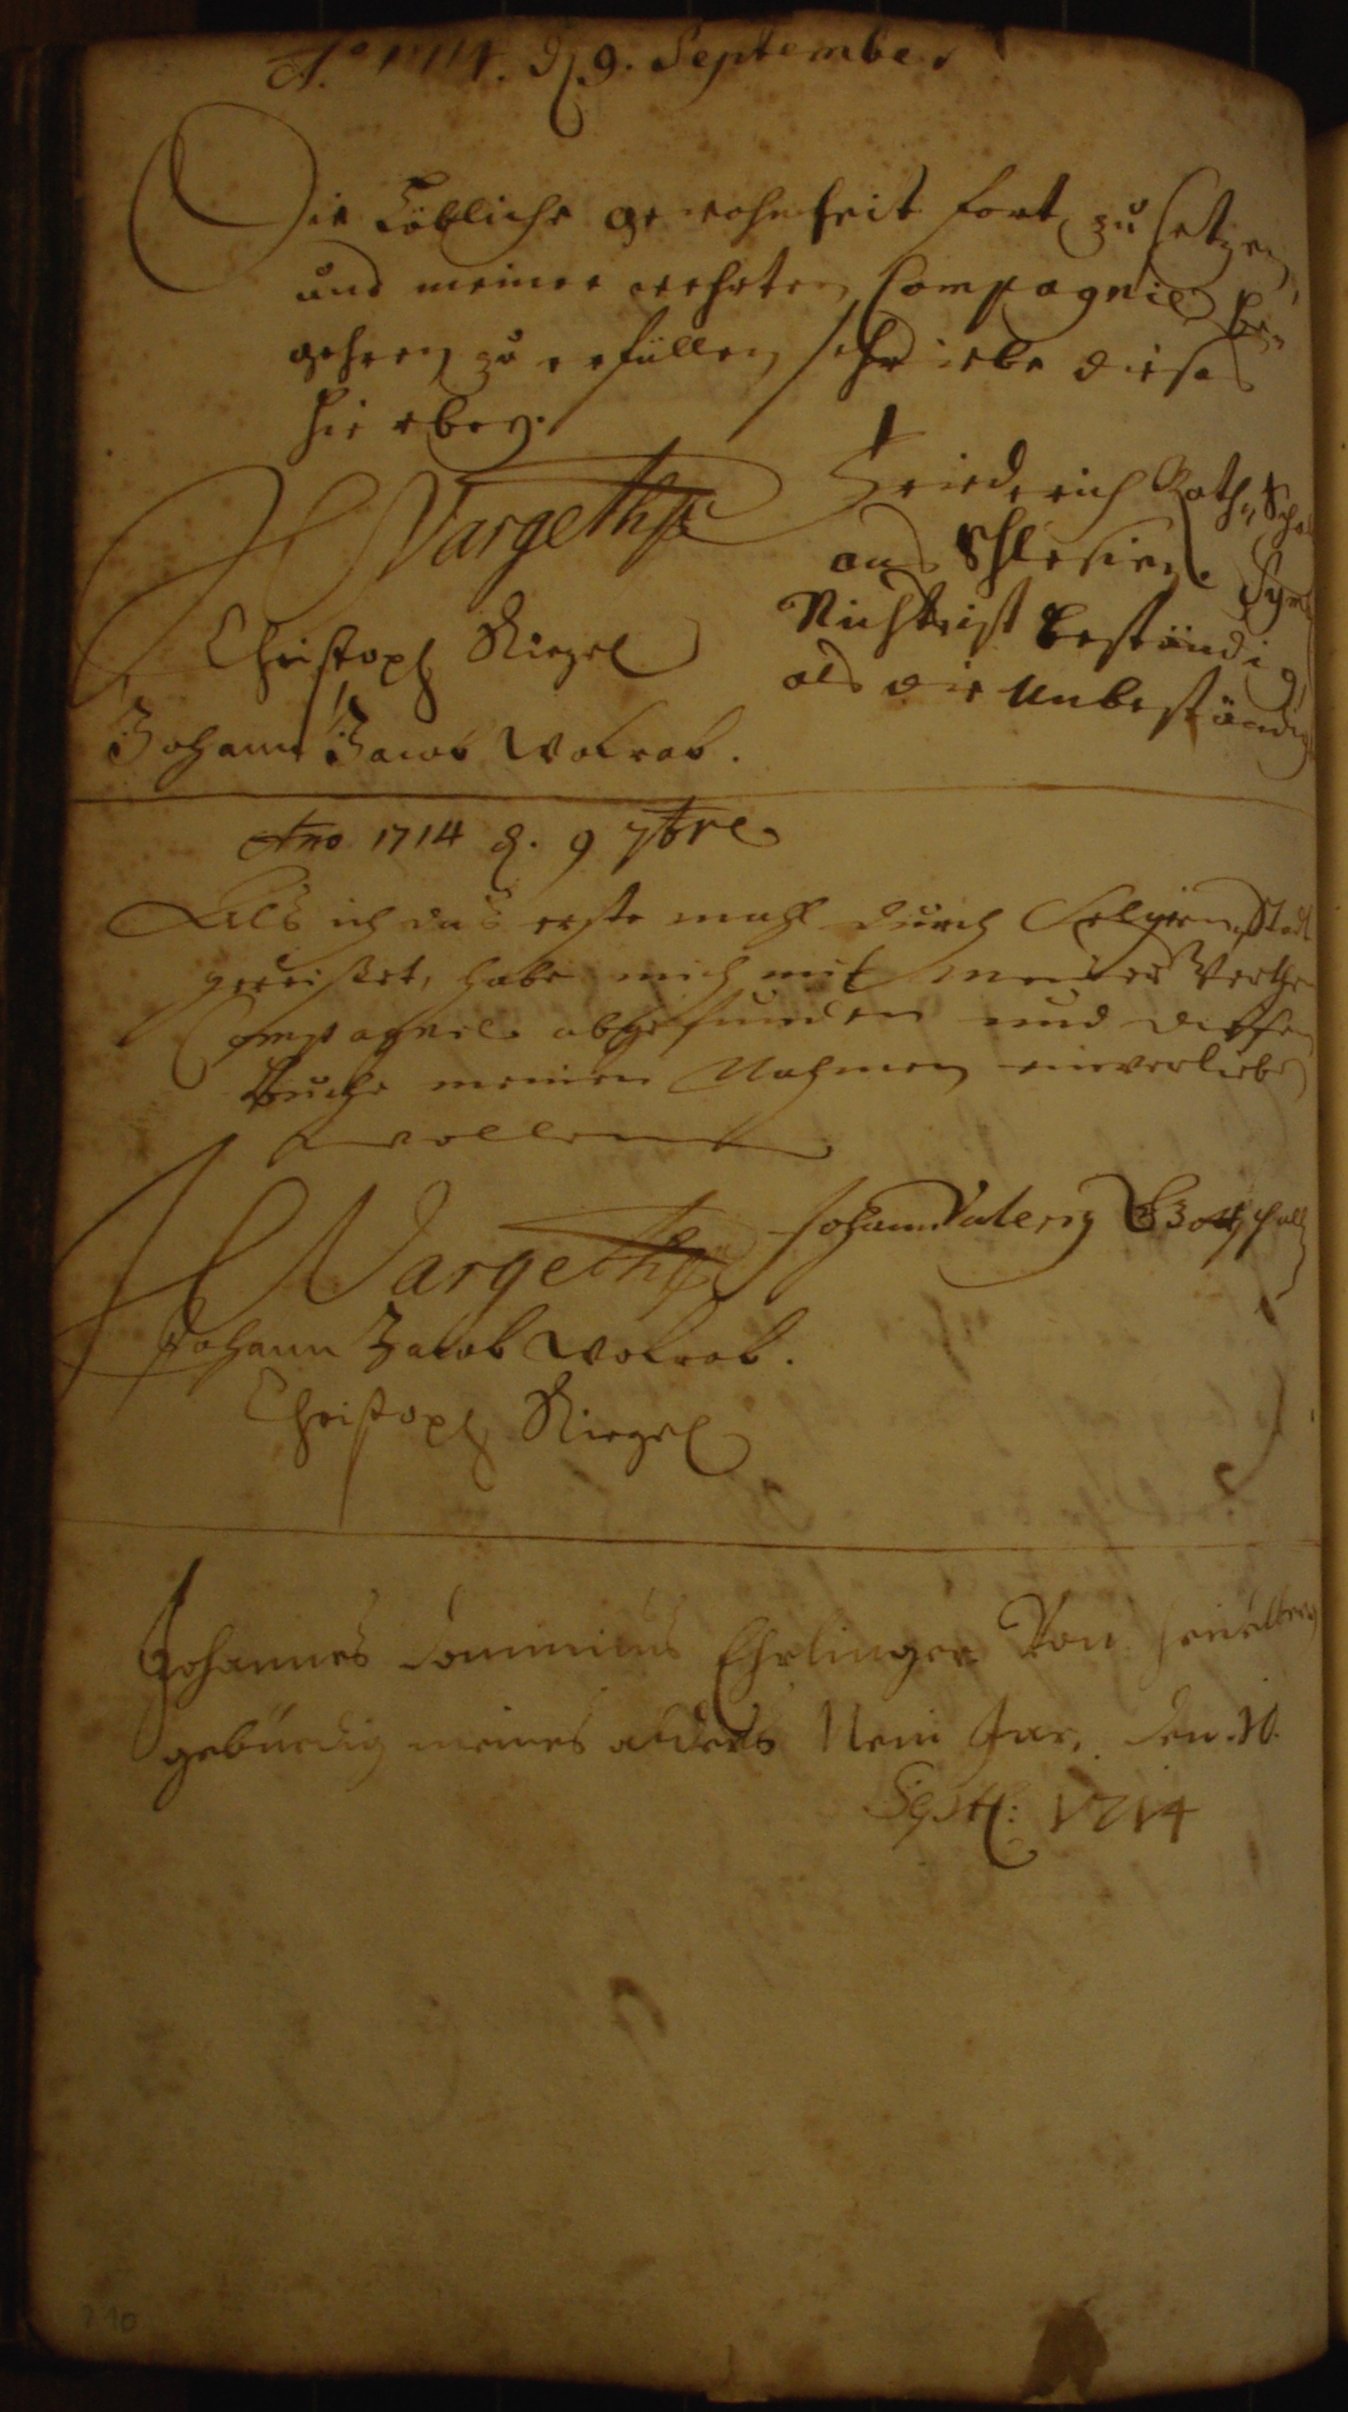 Ao 1714. d. 9. September
Die Löbliche gewohnheit fort zu setzen,
und meiner wehrten Compagnie be„
gehren zu erfüllen, schreibe dieses
hierbey.
Friederich Roth„Scho
aus Schlesien. Symb
Nichts ist beständig
als die Unbeständig
Christoph Riegel
Johann Jacob Wolrab.
Ano 1714 d. 9 7bre
Als ich das erste mahl durch Seligenstadt
gereiset, habe mich mit meiner Werthen
Compagnie abgefunden und diesem
Buche meinen Nahmen einverleiben
wollen
Johann
Johann Jacob Wolrab.
Christoph Riegel
Johannes Dominicus Ehrlinger Von Heidelberg
gebürdig meines alders Nein Jar, den 10.
Septb: 1714
210